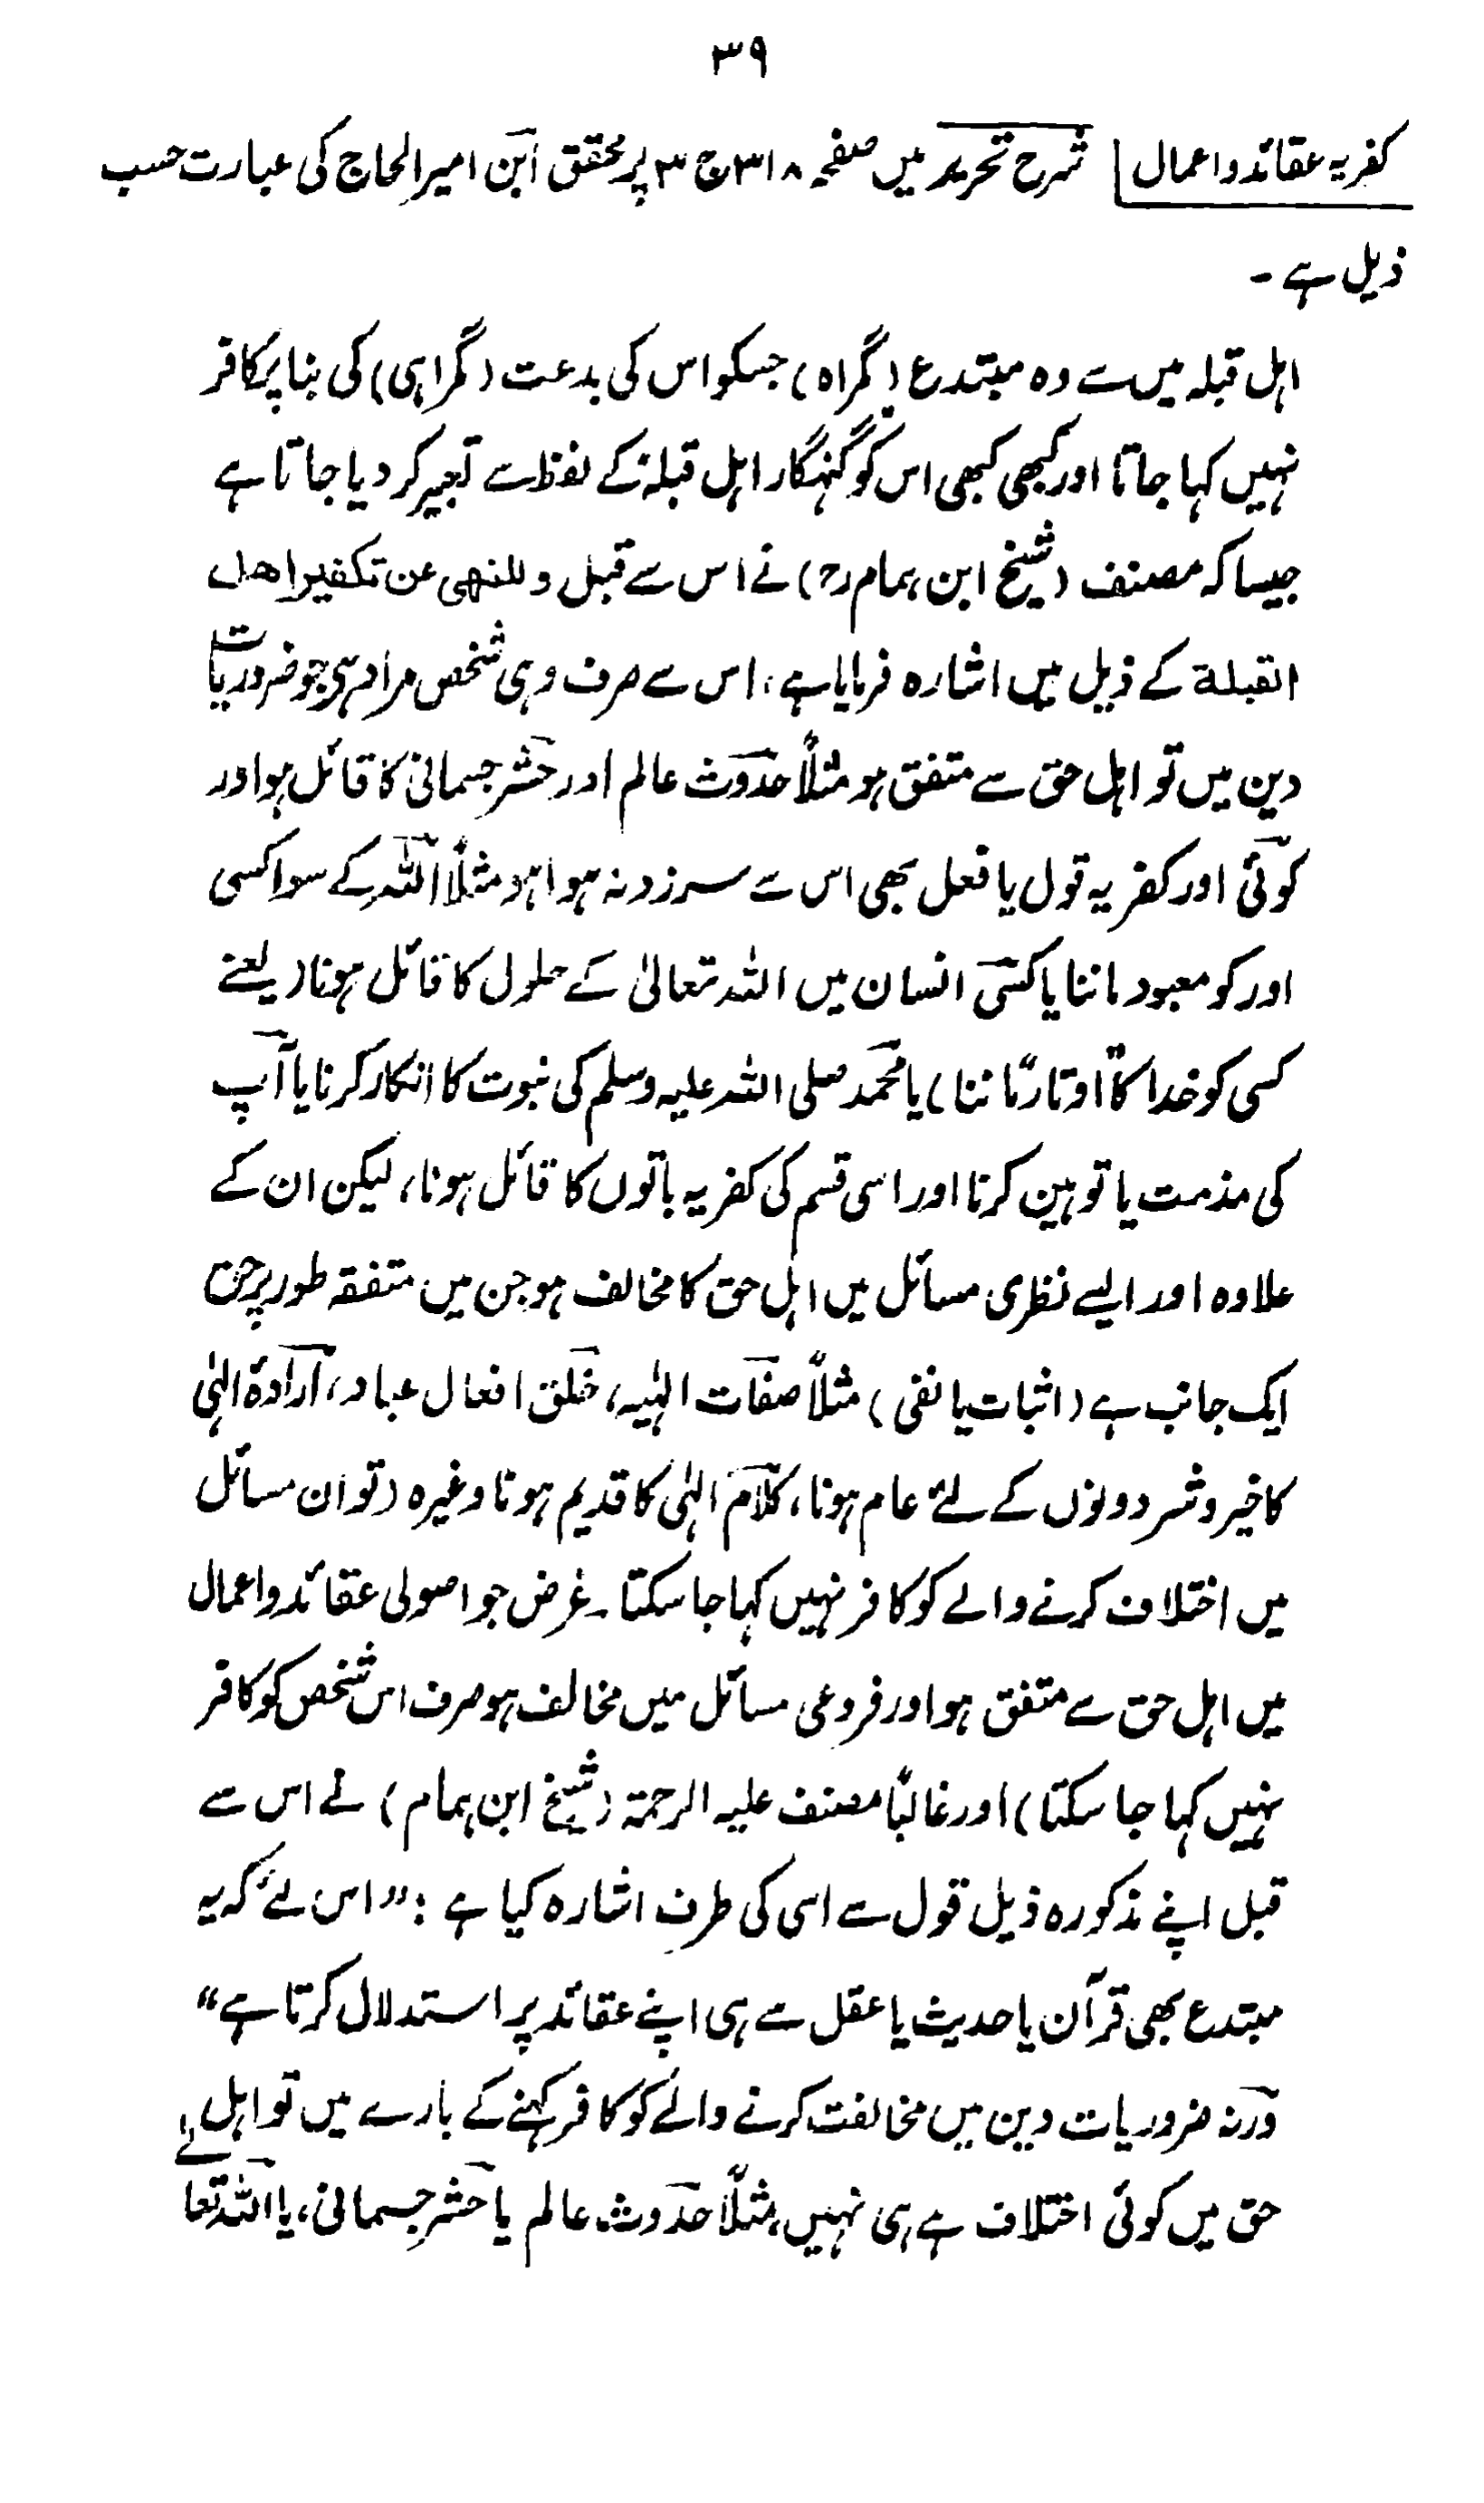 ۳۹
کفریہ عقائد و اعمال شرح تحریر میں صفحہ ۳۱۸ ج ۳ پر محقق ابن امیر الحاج کی عبارت حسب
ذیل ہے۔
اہل قبلہ میں سے وہ مبتدع (گمراہ) جسکو اس کی بدعت (گمراہی) کی بنا پر کافر
نہیں کہا جاتا اور کبھی کبھی اس کو گنہگار اہل قبلہ کے لفظ سے تعبیر کر دیا جاتا ہے
جیسا کہ مصنف (شیخ ابن ہمامؒ) نے اس سے قبل وللنھی عن تکفیر اھل
القبلة کے ذیل میں اشارہ فرمایا ہے، اس سے صرف وہی شخص مراد ہی جو ضروریات
دین میں تو اہل حق سے متفق ہو مثلاً حدوث عالم اور حشر جسمانی کا قائل ہو اور
کوئی اور کفریہ قول یا فعل بھی اس سے سرزد نہ ہوا ہو مثلاً اللہ کے سوا کسی
اور کو معبود ماننا یا کسی انسان میں اللہ تعالیٰ کے حلول کا قائل ہونا (یعنے
کسی کو خدا کا اوتار ماننا) یا محمد صلی اللہ علیہ وسلم کی نبوت کا انکار کرنا یا آپ
کی مذمت یا توہین کرنا اور اسی قسم کی کفریہ باتوں کا قائل ہونا، لیکن ان کے
علاوہ اور ایسے نظری مسائل میں اہل حق کا مخالف ہو جن میں متفقہ طور پر حق
ایک جانب ہے (اثبات یا نفی) مثلاً صفات الٰہیہ، خلق افعال عباد، ارادۃ الٰہی
کا خیر و شر دونوں کے لئے عام ہونا، کلام الٰہی کا قدیم ہونا وغیرہ (تو ان مسائل
میں اختلاف کرنے والے کو کافر نہیں کہا جا سکتا۔ غرض جو اصولی عقائد و اعمال
میں اہل حق سے متفق ہو اور فروعی مسائل میں مخالف ہو صرف اس شخص کو کافر
نہیں کہا جا سکتا) اور غالباً مصنف علیہ الرحمۃ (شیخ ابن ہمام) نے اس سے
قبل اپنے مذکورہ ذیل قول سے اسی کی طرف اشارہ کیا ہے: ”اس لئے کہ یہ
مبتدع بھی قرآن یا حدیث یا عقل سے ہی اپنے عقائد پر استدلال کرتا ہے“
ورنہ ضروریات دین میں مخالفت کرنے والے کو کافر کہنے کے بارے میں تو اہل
حق میں کوئی اختلاف ہے ہی نہیں، مثلاً حدوث عالم یا حشر جسمانی، یا اللہ تعالےٰ